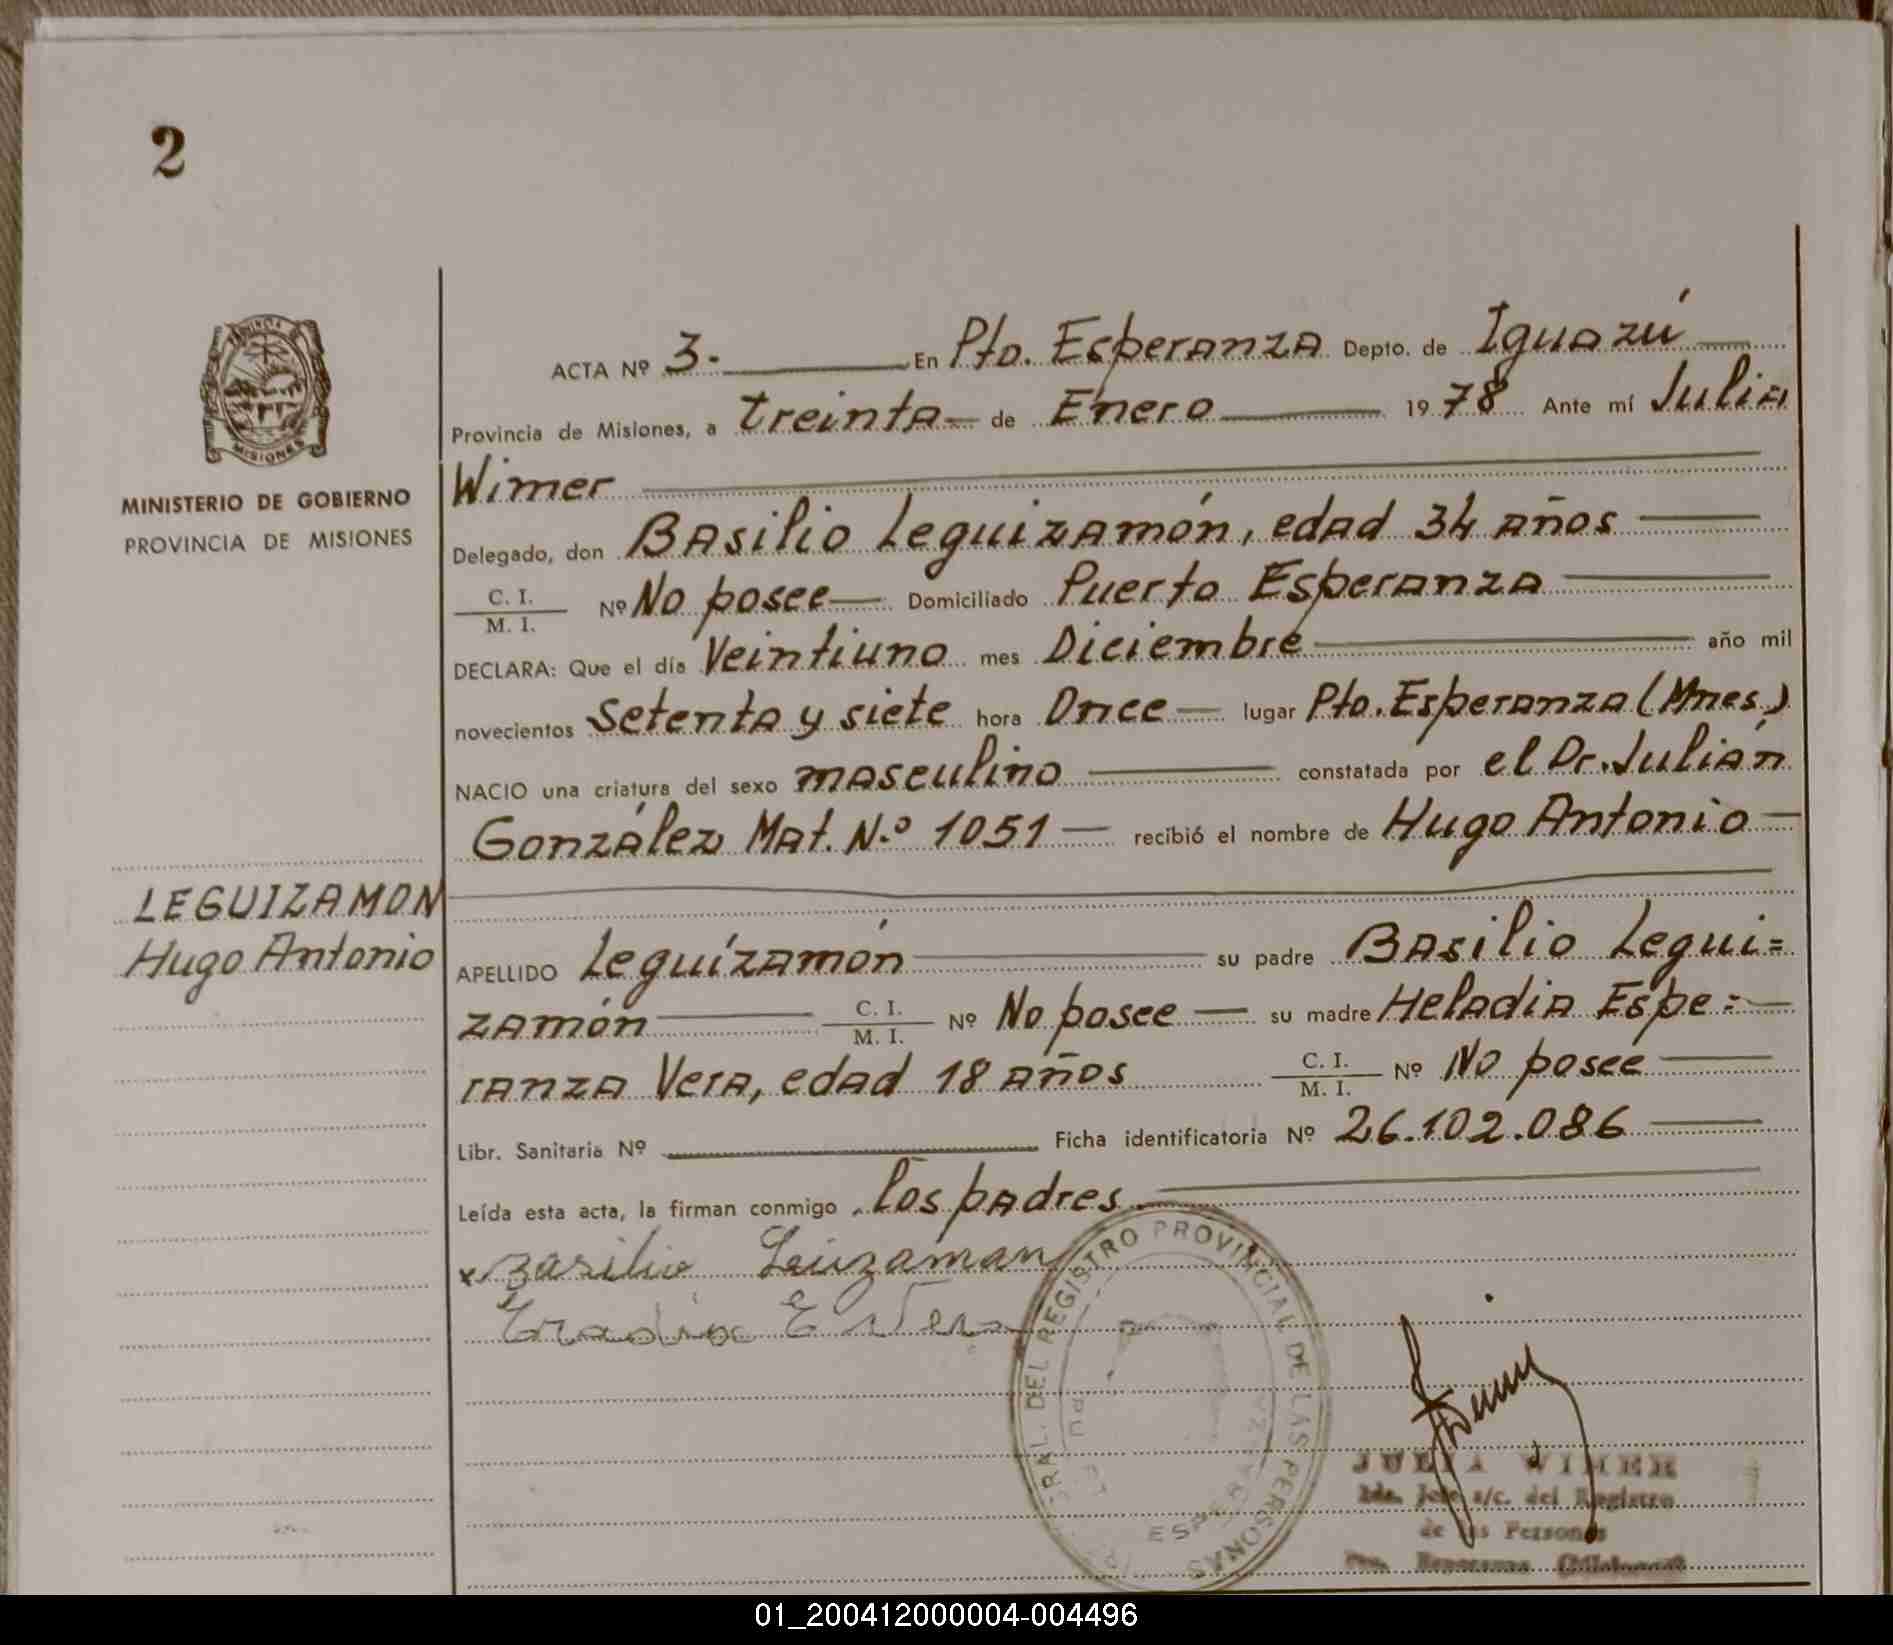 2
PROVINCIA
MISIONES
MINISTERIO DE GOBIERNO
PROVINCIA DE MISIONES
LEGUIZAMON
Hugo Antonio
ACTA Nº 3. En Pto. Esperanza Depto. de Iguazú
Provincia de Misiones, a treinta de Enero 1978 Ante mí Julia
Wimer
Delegado, don Basilio Leguizamón, edad 34 años
C. I.
M. I. Nº No posee Domiciliado Puerto Esperanza
DECLARA: Que el día Veintiuno mes Diciembre año mil
novecientos Setenta y siete hora Once lugar Pto. Esperanza (Mnes.)
NACIO una criatura del sexo masculino constatada por el Dr. Julián
González Mat. N.º 1051 recibió el nombre de Hugo Antonio
APELLIDO Leguízamón su padre Basilio Legui=
zamón C. I. M. I. Nº No posee su madre Heladia Espe=
ranza Vera, edad 18 años C. I. M. I. Nº No posee
Libr. Sanitaria Nº Ficha identificatoria Nº 26.102.086
Leída esta acta, la firman conmigo, los padres
x Basilio Leizaman
Eradia E Vera
GRAL. DEL REGISTRO PROVINCIAL DE LAS PERSONAS
JULIA WIMER
Jefe s/c. del Registro
de las Personas
Pto. Esperanza
01_200412000004-004496